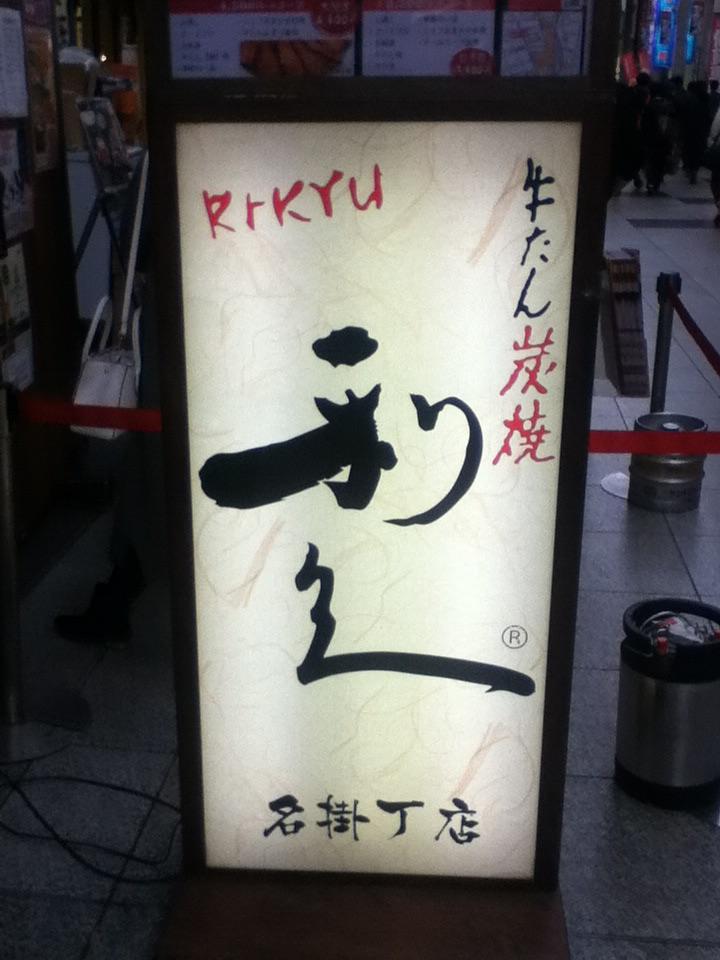 RIKYU
牛たん炭焼
利久
®
名掛丁店